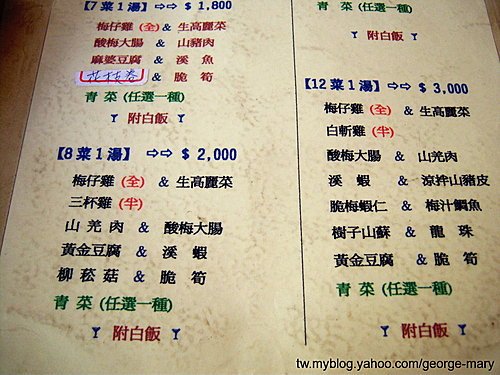 【7 菜 1 湯】 ⇨⇨ $ 1,800
梅仔雞 (全) & 生高麗菜
酸梅大腸 & 山豬肉
麻婆豆腐 & 溪 魚
花枝卷 & 脆 筍
青 菜 (任選一種)
Y 附白飯 Y
【8 菜 1 湯】 ⇨⇨ $ 2,000
梅仔雞 (全) & 生高麗菜
三杯雞 (半)
山 羌 肉 & 酸梅大腸
黃金豆腐 & 溪 蝦
柳 菘 菇 & 脆 筍
青 菜 (任選一種)
Y 附白飯 Y
青 菜 (任選一種)
Y 附白飯 Y
【12 菜 1 湯】 ⇨⇨ $ 3,000
梅仔雞 (全) & 生高麗菜
白斬雞 (半)
酸梅大腸 & 山羌肉
溪 蝦 & 涼拌山豬皮
脆梅蝦仁 & 梅汁鯛魚
樹子山蘇 & 龍 珠
黃金豆腐 & 脆 筍
青 菜 (任選一種)
Y 附白飯 Y
tw.myblog.yahoo.com/george-mary